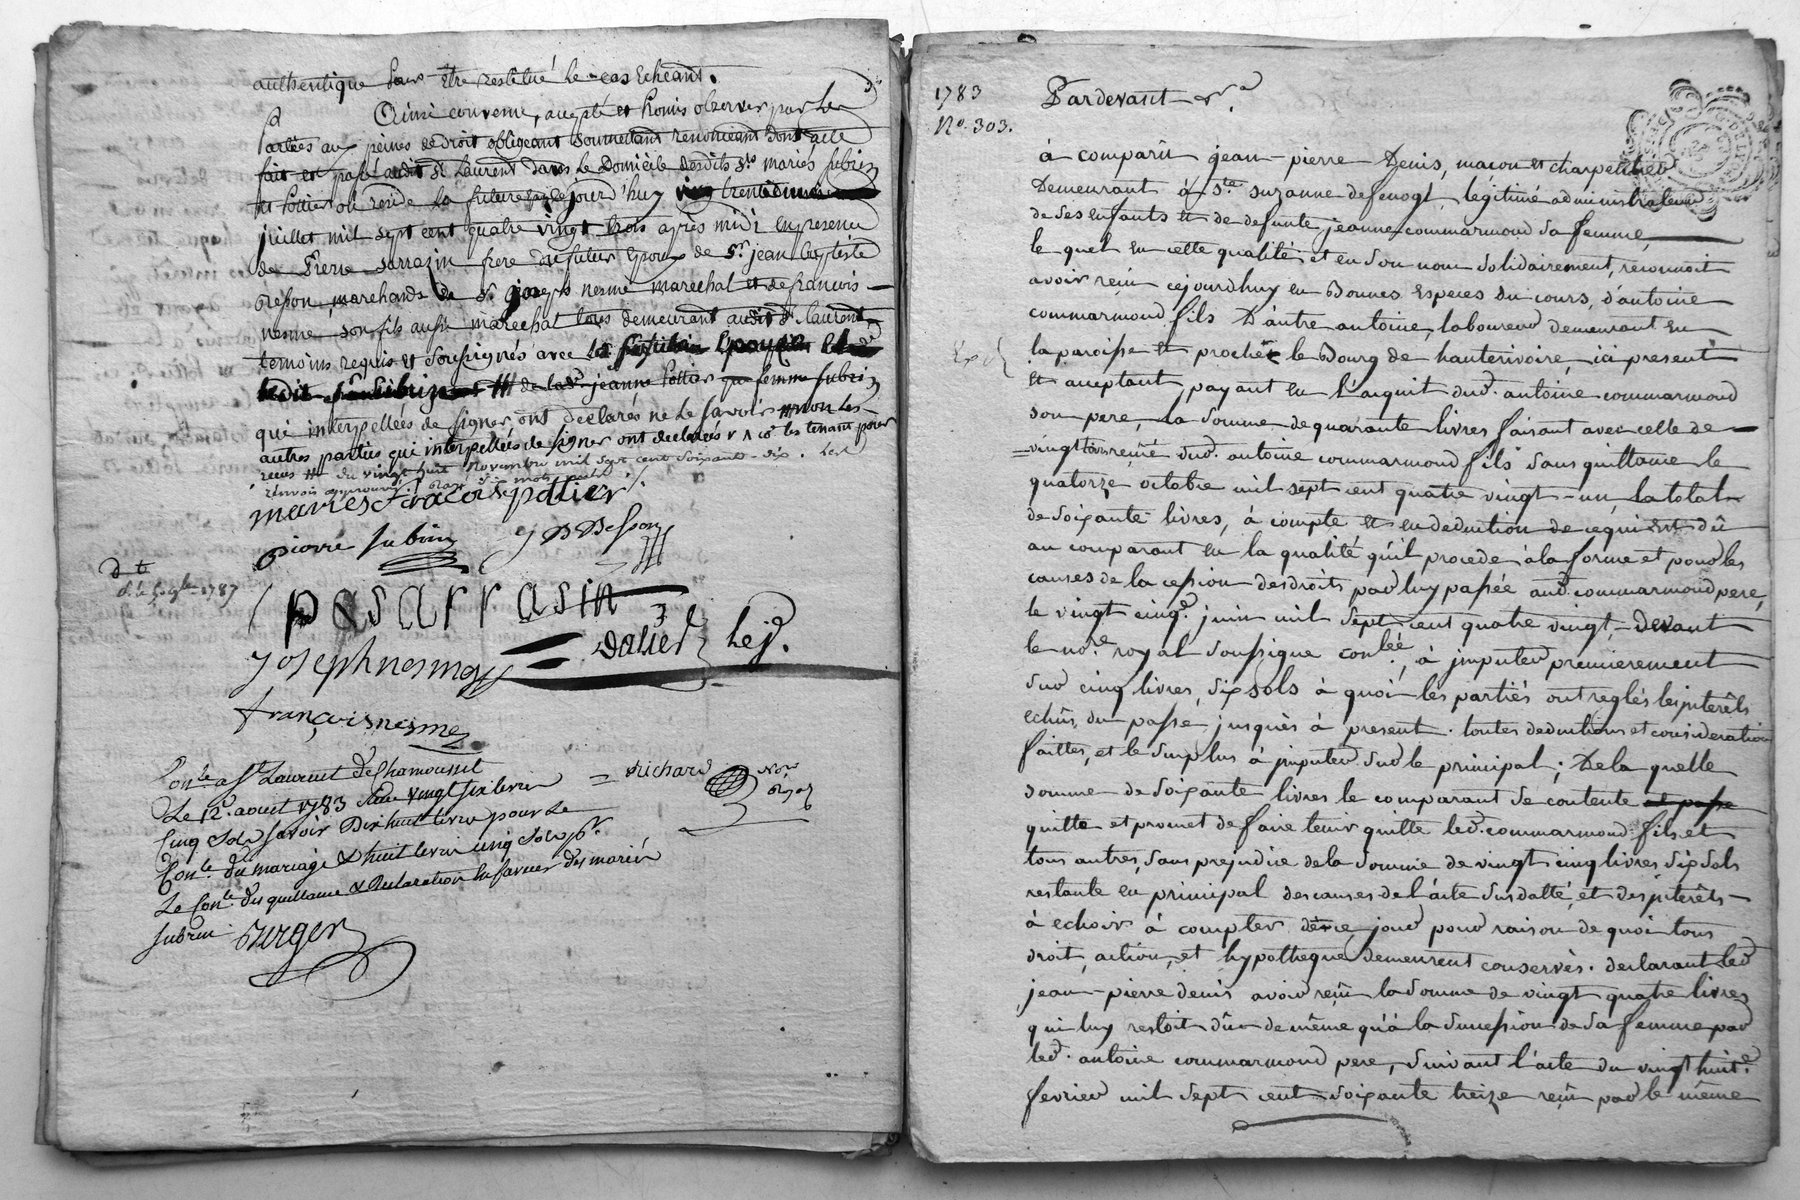 authentique pour être restitué le cas écheant.
Ainsi convenu, accepté et promis observer par les
Parties aux peines de droit obligeant soumettant renonceant dont acte
fait et passé audit St Laurent dans le Domicile desdits srs mariés subrin
et Pottier où reside la future cejourd'huy
juillet mil sept cent quatre vingt trois après midi en presence
de Pierre sarrazin frere du futur Epoux de Sr. jean baptiste
Besson, marchands de Sr joseph nesme marechal et de francois
nesme son fils aussi marechal tous demeurant audit St laurent
temoins requis et soussignés avec
de lade jeanne Pottier femme subrin
qui interpellées de signer ont declarés ne le savoir non les
autres parties qui interpellées de signer ont declarés
du vingt huit novembre mil sept cent soixante-dix.
renvois approuvés
maries francois potier
pierre subrin J B Besson
1787
pesarrasin
dalier
joseph nesme
françois nesme
Conlé a St Laurent de Chamousset
Le 12e. aoust 1783 vingt six livres
Cinq sols savoir Dix huit livres pour le
Conle. du mariage & huit livres cinq sols pr.
Le Conle. des quittance & Declaration en faveur des mariés
subrin Berger
= Richard Nore Royal
1783
No. 303.
Pardevant &a.
à comparû jean-pierre Denis, macon et charpentier
Demeurant à ste. suzanne legitime administrateur
de ses enfants et de defunte jeanne commarmond sa femme,
le quel en cette qualité et en son nom solidairement, reconnoit
avoir reçû cejourdhuy en Bonnes Especes du cours, d'antoine
commarmond fils D'autre antoine, laboureur demeurant en
la paroisse et proche le Bourg de hauterivoire, ici present
Expé
et acceptant, payant en l'acquit dud. antoine commarmond
son pere, la somme de quarante livres faisant avec celle de
vingt livres reçûë dud. antoine commarmond fils sans quittance le
quatorze octobre mil sept cent quatre vingt-un, la total
de soixante livres, à compte et en deduction de ce qui est dû
au comparant en la qualité qu'il procede à la forme et pour les
causes de la cession des droits par luy passée aud. commarmond pere,
le vingt cinqe. juin mil sept cent quatre vingt, devant
le nore. royal soussigné conlée, à jmputer premierement
sur cinq livres, six sols à quoi les partiës ont reglés les jnterêts
echûs, du passé jusques à present. toutes deductions et considerations
faittes, et le surplus à jmputer sur le principal; De la quelle
somme de soixante livres le comparant se contente et passe
quitte et promet de faire tenir quitte led. commarmond fils et
tous autres, sans prejudice de la somme de vingt cinq livres six sols
restante en principal des causes de l'acte susdatté, et des jnterêts
à echoir à compter de ce jour pour raison de quoi tous
droit, action, et hypotheque demeurent conservès. declarant led.
jean-pierre denis avoir reçû la somme de vingt quatre livres
qui luy restoit dûe de même qu'à la succession de sa femme par
led. antoine commarmond pere, suivant l'acte du vingt huite.
fevrier mil sept cent soixante treize reçû par le même